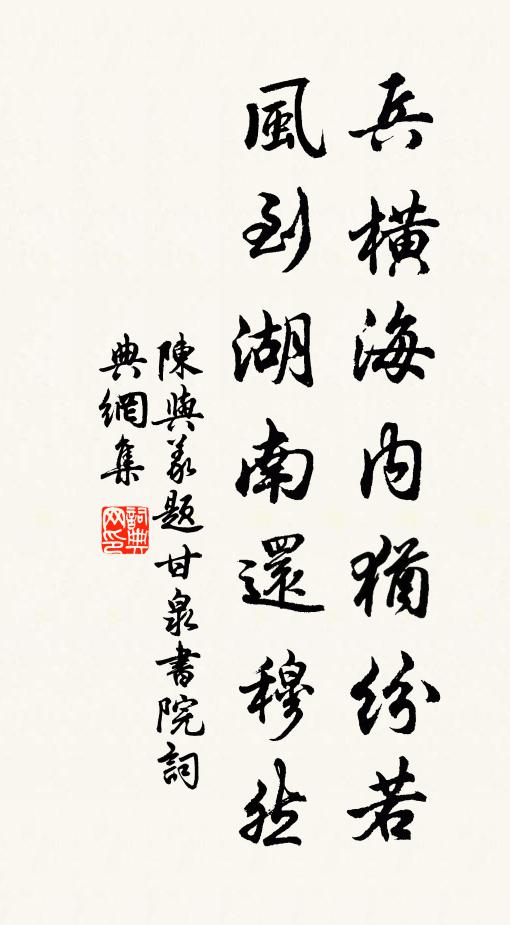 兵橫海内猶紛若
風到湖南還穆然
陳與義題甘泉書院詞
典網集
詞典網印